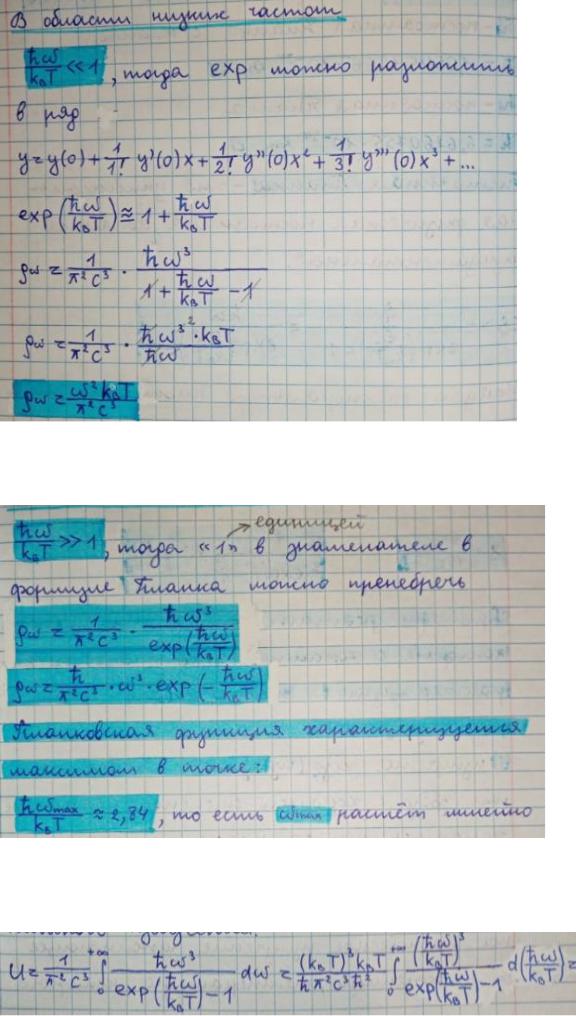 В области низких частот
ħω/k_BT << 1, тогда exp можно разложить
в ряд
y = y(0) + 1/1! y'(0)x + 1/2! y''(0)x² + 1/3! y'''(0)x³ + ...
exp(ħω/k_BT) ≅ 1 + ħω/k_BT
ρω = 1/π²c³ · ħω³/(1 + ħω/k_BT − 1)
ρω = 1/π²c³ · ħω³ ² · k_BT/ħω
ρω = ω²k_BT/π²c³
единицей
ħω/k_BT >> 1, тогда «1» в знаменателе в
формуле Планка можно пренебречь
ρω = 1/π²c³ · ħω³/exp(ħω/k_BT)
ρω = ħ/π²c³ · ω³ · exp(−ħω/k_BT)
Планковская функция характеризуется
максимом в точке:
ħω_max/k_BT ≈ 2,84, то есть ω_max растёт линейно
U = 1/π²c³ ∫₀^{+∞} ħω³/(exp(ħω/k_BT) − 1) dω = (k_BT)³k_BT/ħπ²c³ħ² ∫₀^{+∞} (ħω/k_BT)³/(exp(ħω/k_BT) − 1) d(ħω/k_BT) =